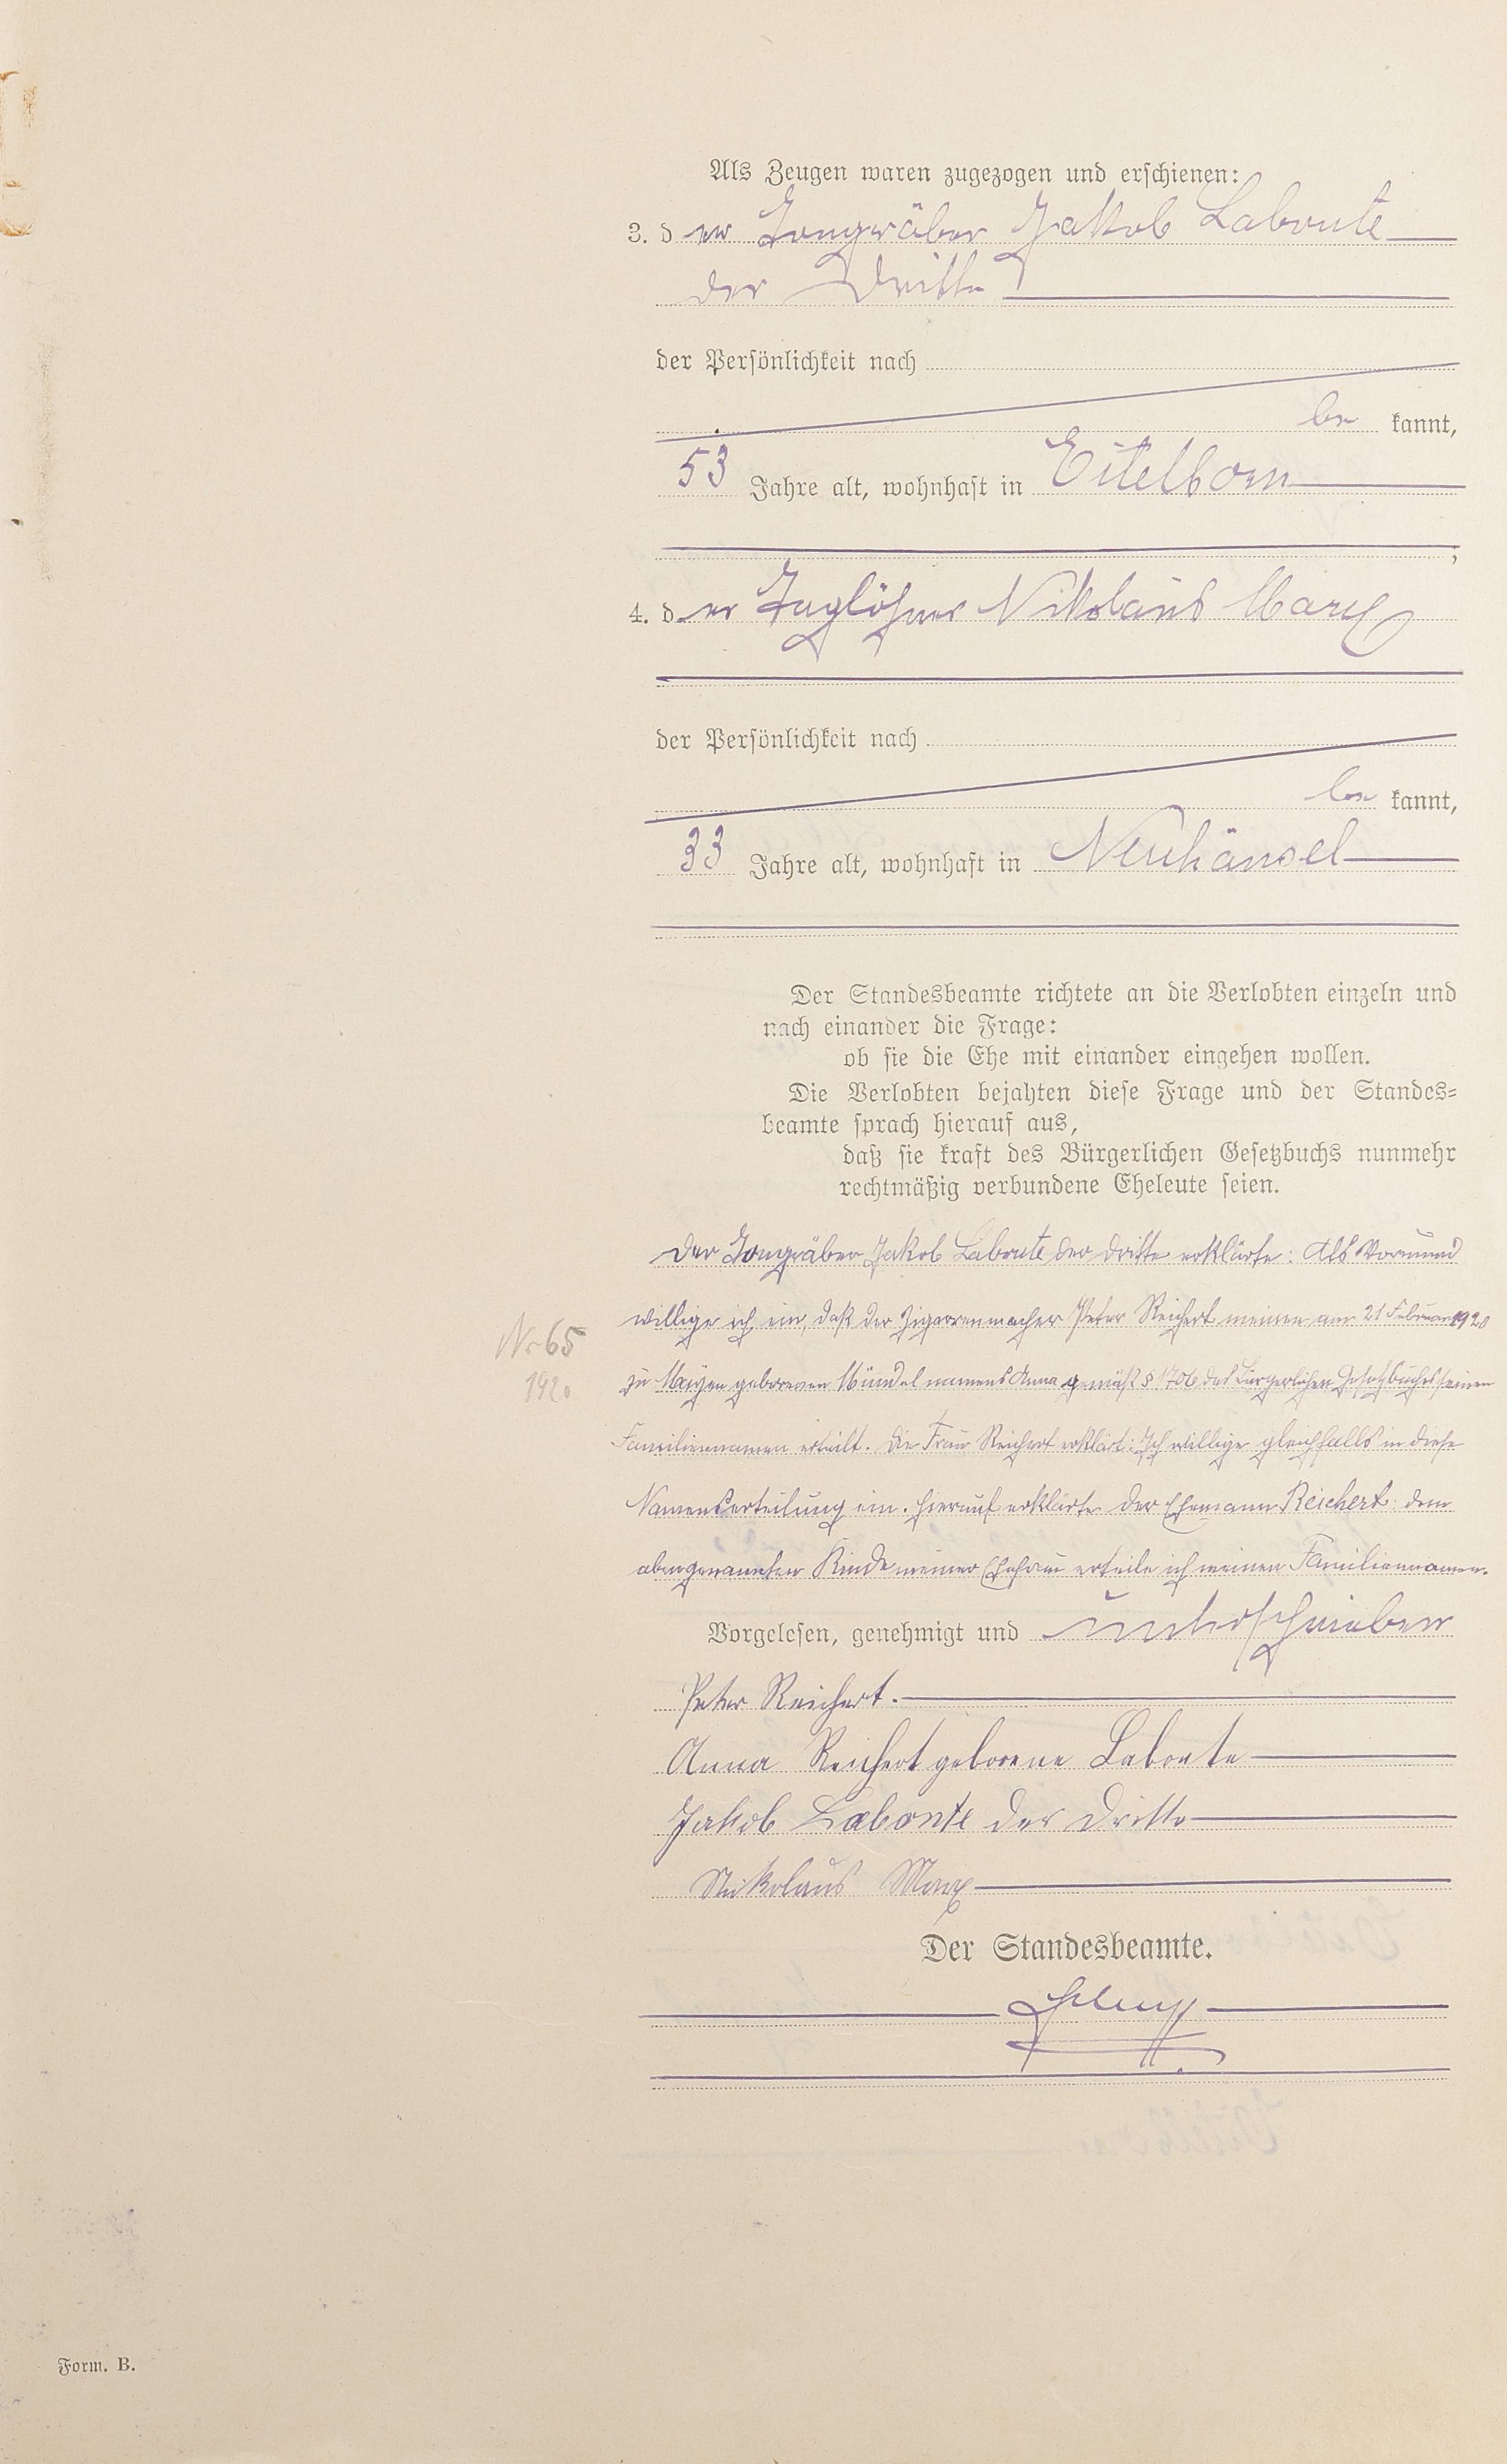 Als Zeugen waren zugezogen und erschienen:
3. der Tongräber Jakob Labonte
der Dritte
der Persönlichkeit nach
be kannt,
53 Jahre alt, wohnhaft in Eitelborn
;
4. der Taglöhner Nikolaus Marx
der Persönlichkeit nach
be kannt,
33 Jahre alt, wohnhaft in Neuhäusel
Der Standesbeamte richtete an die Verlobten einzeln und
nach einander die Frage:
ob sie die Ehe mit einander eingehen wollen.
Die Verlobten bejahten diese Frage und der Standes-
beamte sprach hierauf aus,
daß sie kraft des Bürgerlichen Gesetzbuchs nunmehr
rechtmäßig verbundene Eheleute seien.
Der Tongräber Jakob Labonte der Dritte erklärte: Als Vormund
willige ich ein, daß der Zigarrenmacher Peter Reichert meinem am 21 Februar 1920
Nr 65
1920
zu Mayen geborenen Mündel namens Anna gemäß § 1706 des Bürgerlichen Gesetzbuches seinen
Familiennamen erteilt. Die Frau Reichert erklärt: Ich willige gleichfalls in diese
Namenserteilung ein. Hierauf erklärte der Ehemann Reichert: dem
obengenannten Kinde meiner Ehefrau erteile ich meinen Familiennamen.
Vorgelesen, genehmigt und unterschrieben
Peter Reichert.
Anna Reichert geborene Labonte
Jakob Labonte der Dritte
Nikolaus Marx
Der Standesbeamte.
Form. B.